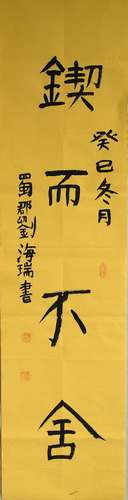 鍥而不舍
癸巳冬月
蜀郡劉海瑞書